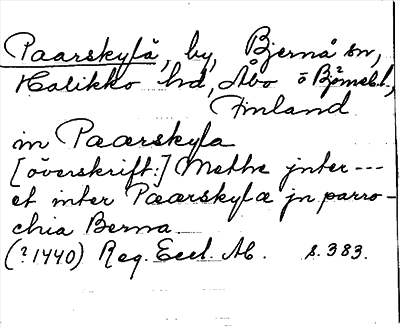 Paarskylä, by, Bjernå sn,
Halikko hd, Åbo o Bjömeb.l.,
Finland
in Paarskyla
[överskrift:] Methe jnter ---
et inter Paarskyla jn parro-
chia Berna.
(?1440) Reg. Eccl. Ab. s. 383.